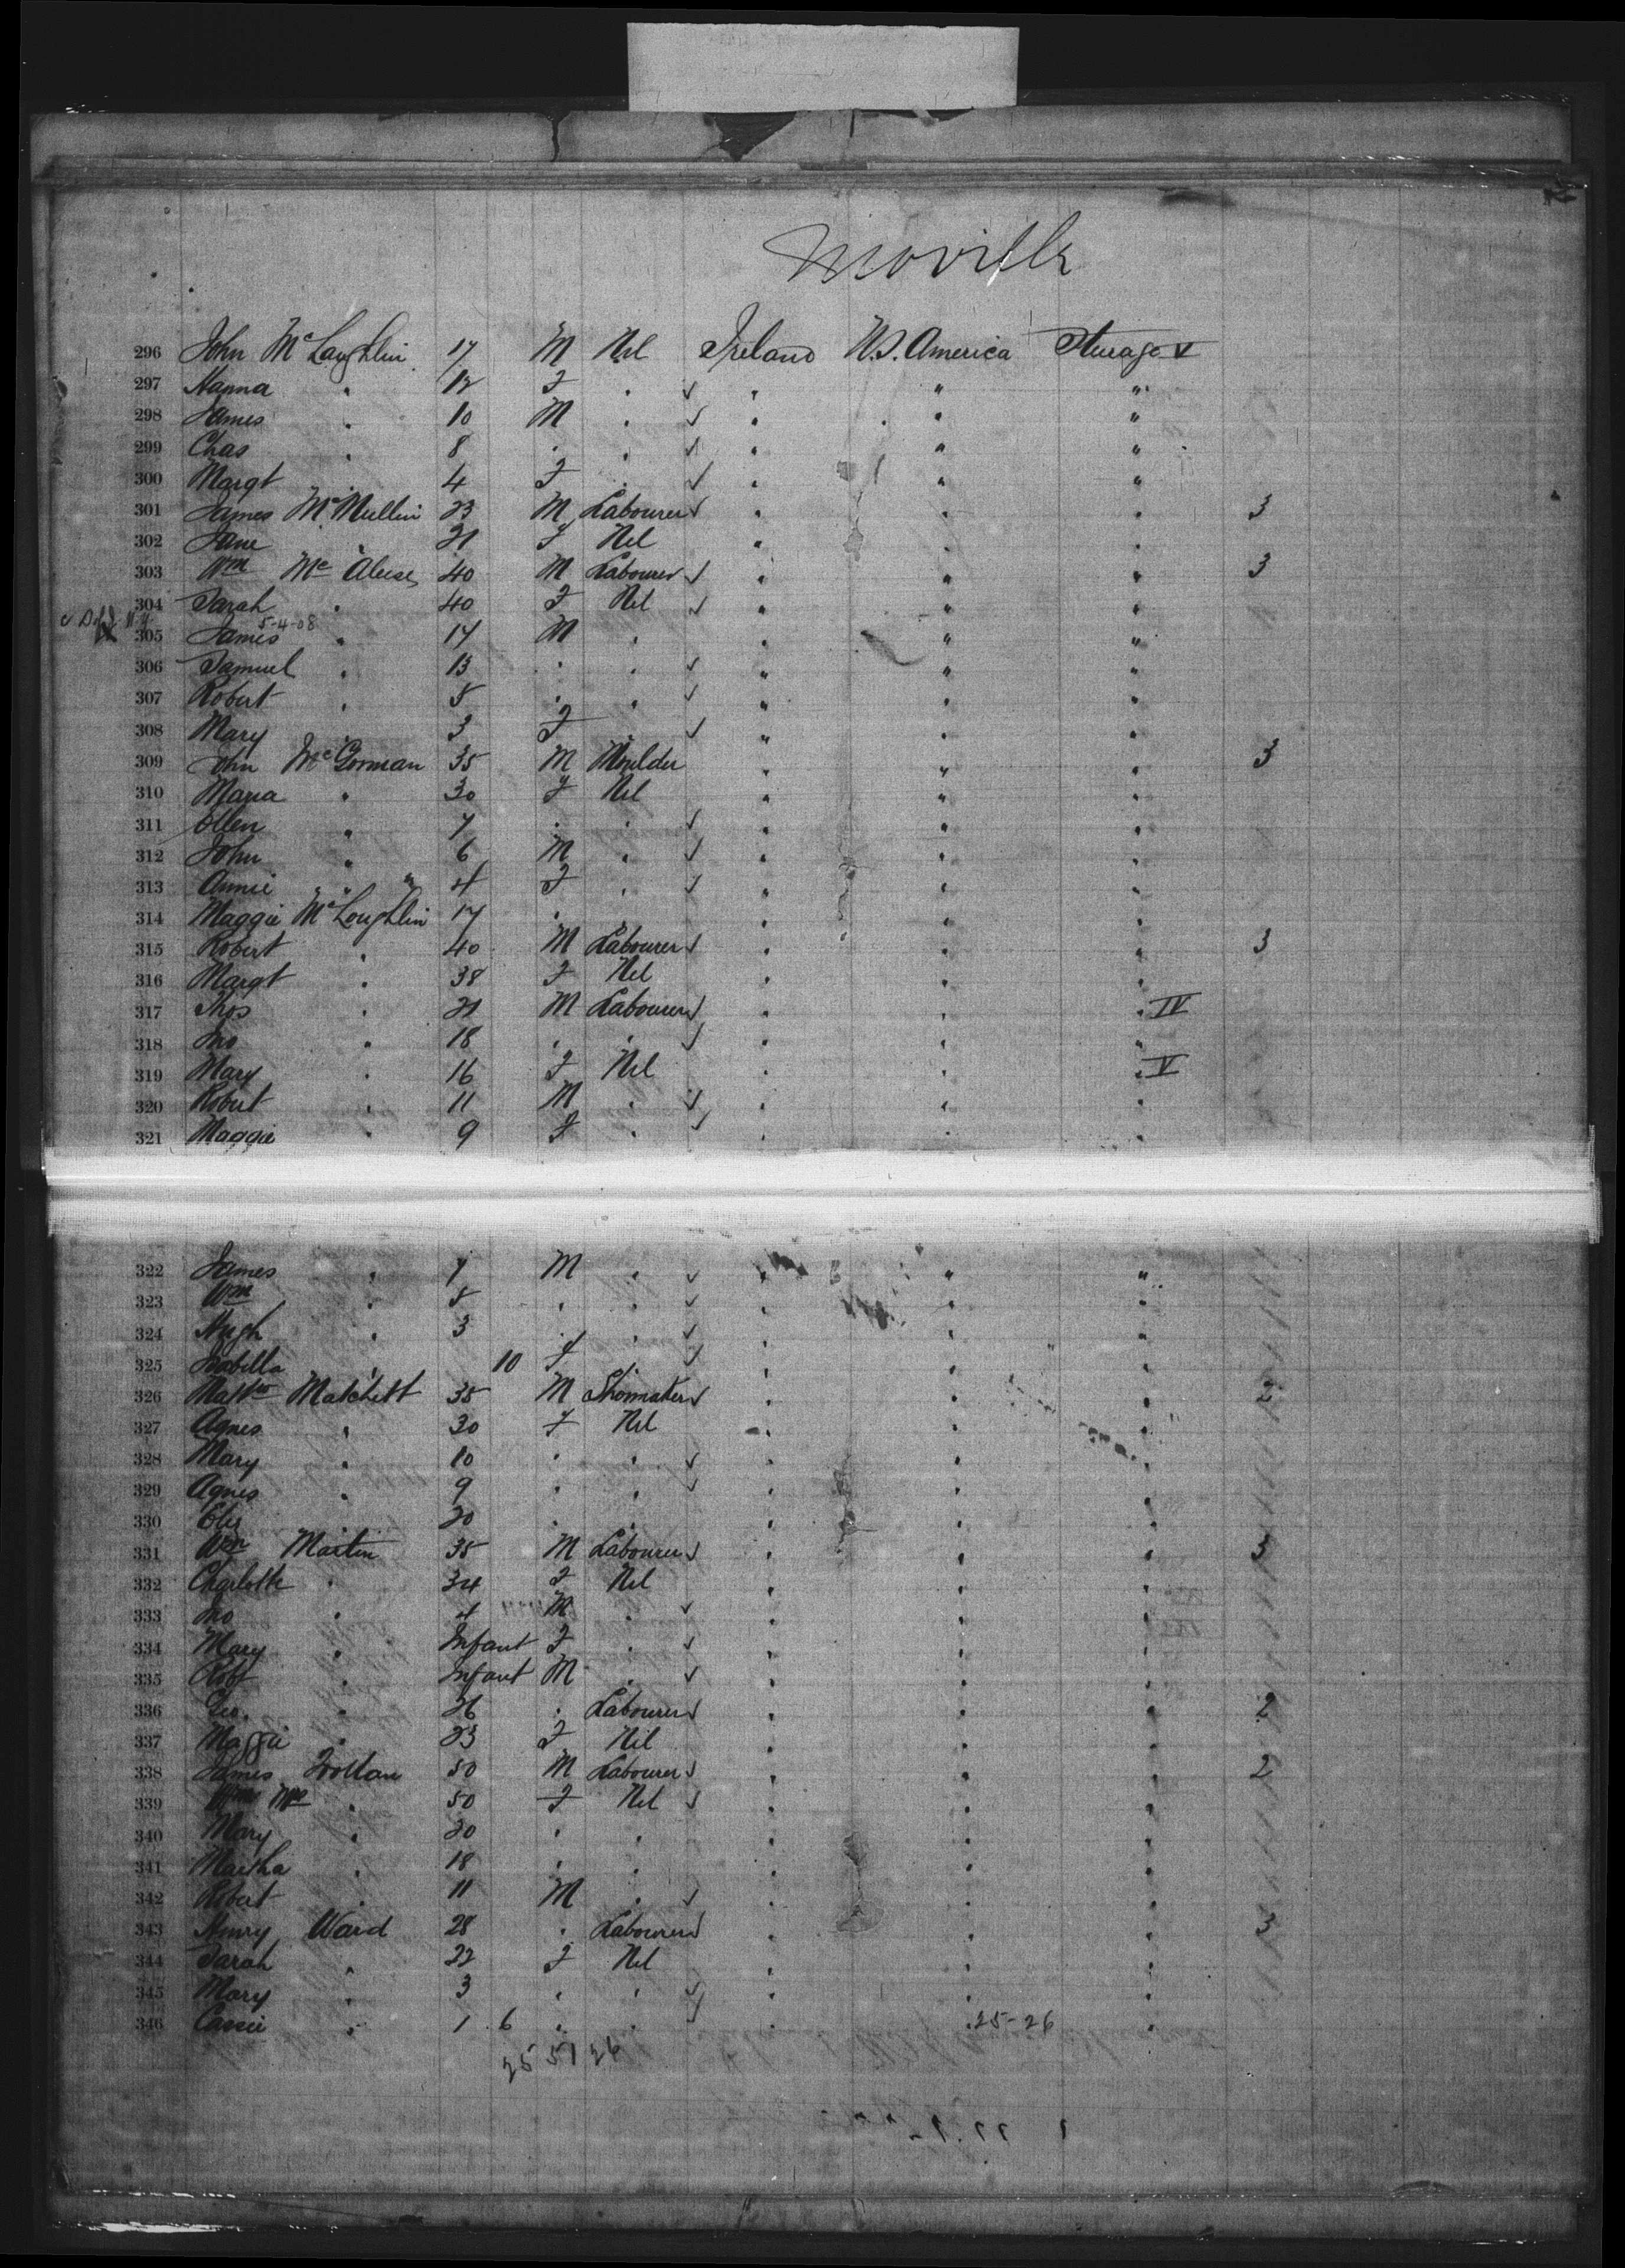 Moville
296 John McLaughlin 17 M Nil Ireland U.S. America Steerage V
297 Hanna " 12 F " ✓ " " "
298 James " 10 M " ✓ " " "
299 Chas " 8 " " ✓ " " "
300 Margt " 4 F " ✓ " " "
301 James McMullin 23 M Labourer ✓ " " " 3
302 Jane " 21 F Nil " " "
303 Wm Mc 40 M Labourer ✓ " " " 3
304 Sarah " 40 F Nil ✓ " " "
5-4-08
305 James " 17 M " " " "
306 Samuel " 13 " " ✓ " " "
307 Robert " 5 " " ✓ " " "
308 Mary " 3 F " ✓ " " "
309 John McGorman 35 M Moulder " " " 3
310 Maria " 30 F Nil " " "
311 Ellen " 7 " " ✓ " " "
312 John " 6 M " ✓ " " "
313 Annie " 4 F " ✓ " " "
314 Maggie McLoughlin 17 " " " " "
315 Robert " 40 M Labourer ✓ " " " 3
316 Margt " 38 F Nil " " "
317 Thos " 21 M Labourer ✓ " " " IV
318 Jno " 18 " " ✓ " " "
319 Mary " 16 F Nil " " " V
320 Robert " 11 M " ✓ " " "
321 Maggie " 9 F " ✓ " " "
322 James " 7 M " ✓ " " "
323 Wm " 5 " " ✓ " " "
324 Hugh " 3 " " ✓ " " "
325 Isabella " 10 F " ✓ " " "
326 Matchett 35 M Shoemaker ✓ " " " 2
327 Agnes " 30 F Nil " " "
328 Mary " 10 " " ✓ " " "
329 Agnes " 9 " " ✓ " " "
330 " 20 " " " " "
331 Wm Martin 35 M Labourer ✓ " " " 3
332 Charlotte " 34 F Nil " " "
333 Jno " 4 M " ✓ " " "
334 Mary " Infant F " ✓ " " "
335 Robt " Infant M " ✓ " " "
336 Geo. " 26 " Labourer ✓ " " " 2
337 Maggie " 23 F Nil " " "
338 James 50 M Labourer ✓ " " " 2
339 " 50 F Nil ✓ " " "
340 Mary " 20 " " " " "
341 Martha " 18 " " " " "
342 Robert " 11 M " ✓ " " "
343 Henry Ward 28 " Labourer ✓ " " " 3
344 Sarah " 22 F Nil " " "
345 Mary " 3 " " ✓ " " "
346 Cassie " 1 6 " " ✓ " " 25-26 "
25 51 26